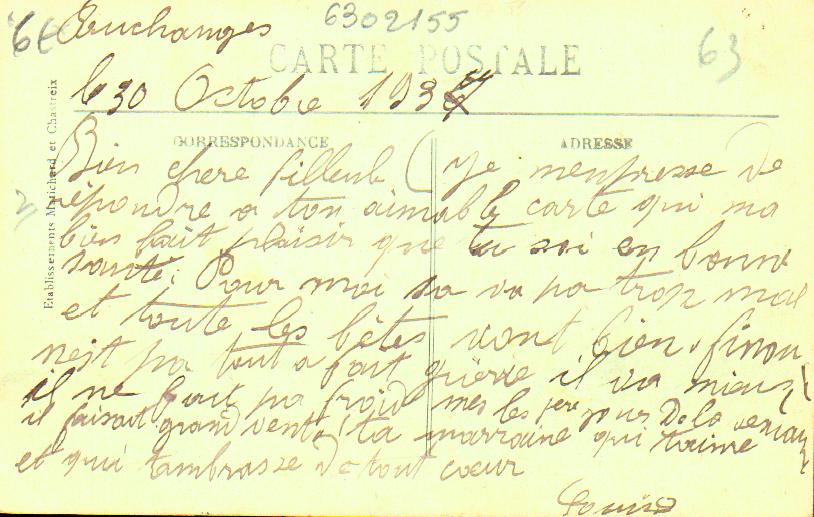 6302155
63
CARTE POSTALE
le 30 Octobre 193
CORRESPONDANCE
ADRESSE
Etablissements Matichard et Chastreix
Bien chere filleule ( Je menpresse de
répondre a ton aimable carte qui ma
bien fait plaisir que tu soi en bonne
santé. Pour moi sa va pa trop mal
et toute les bêtes vont bien .
nest pa tout a fait guérre il va mieux
il ne fait pa froid mes les jour
il faisait grand vent ta marraine qui taime
et qui tambrasze de tout cœur